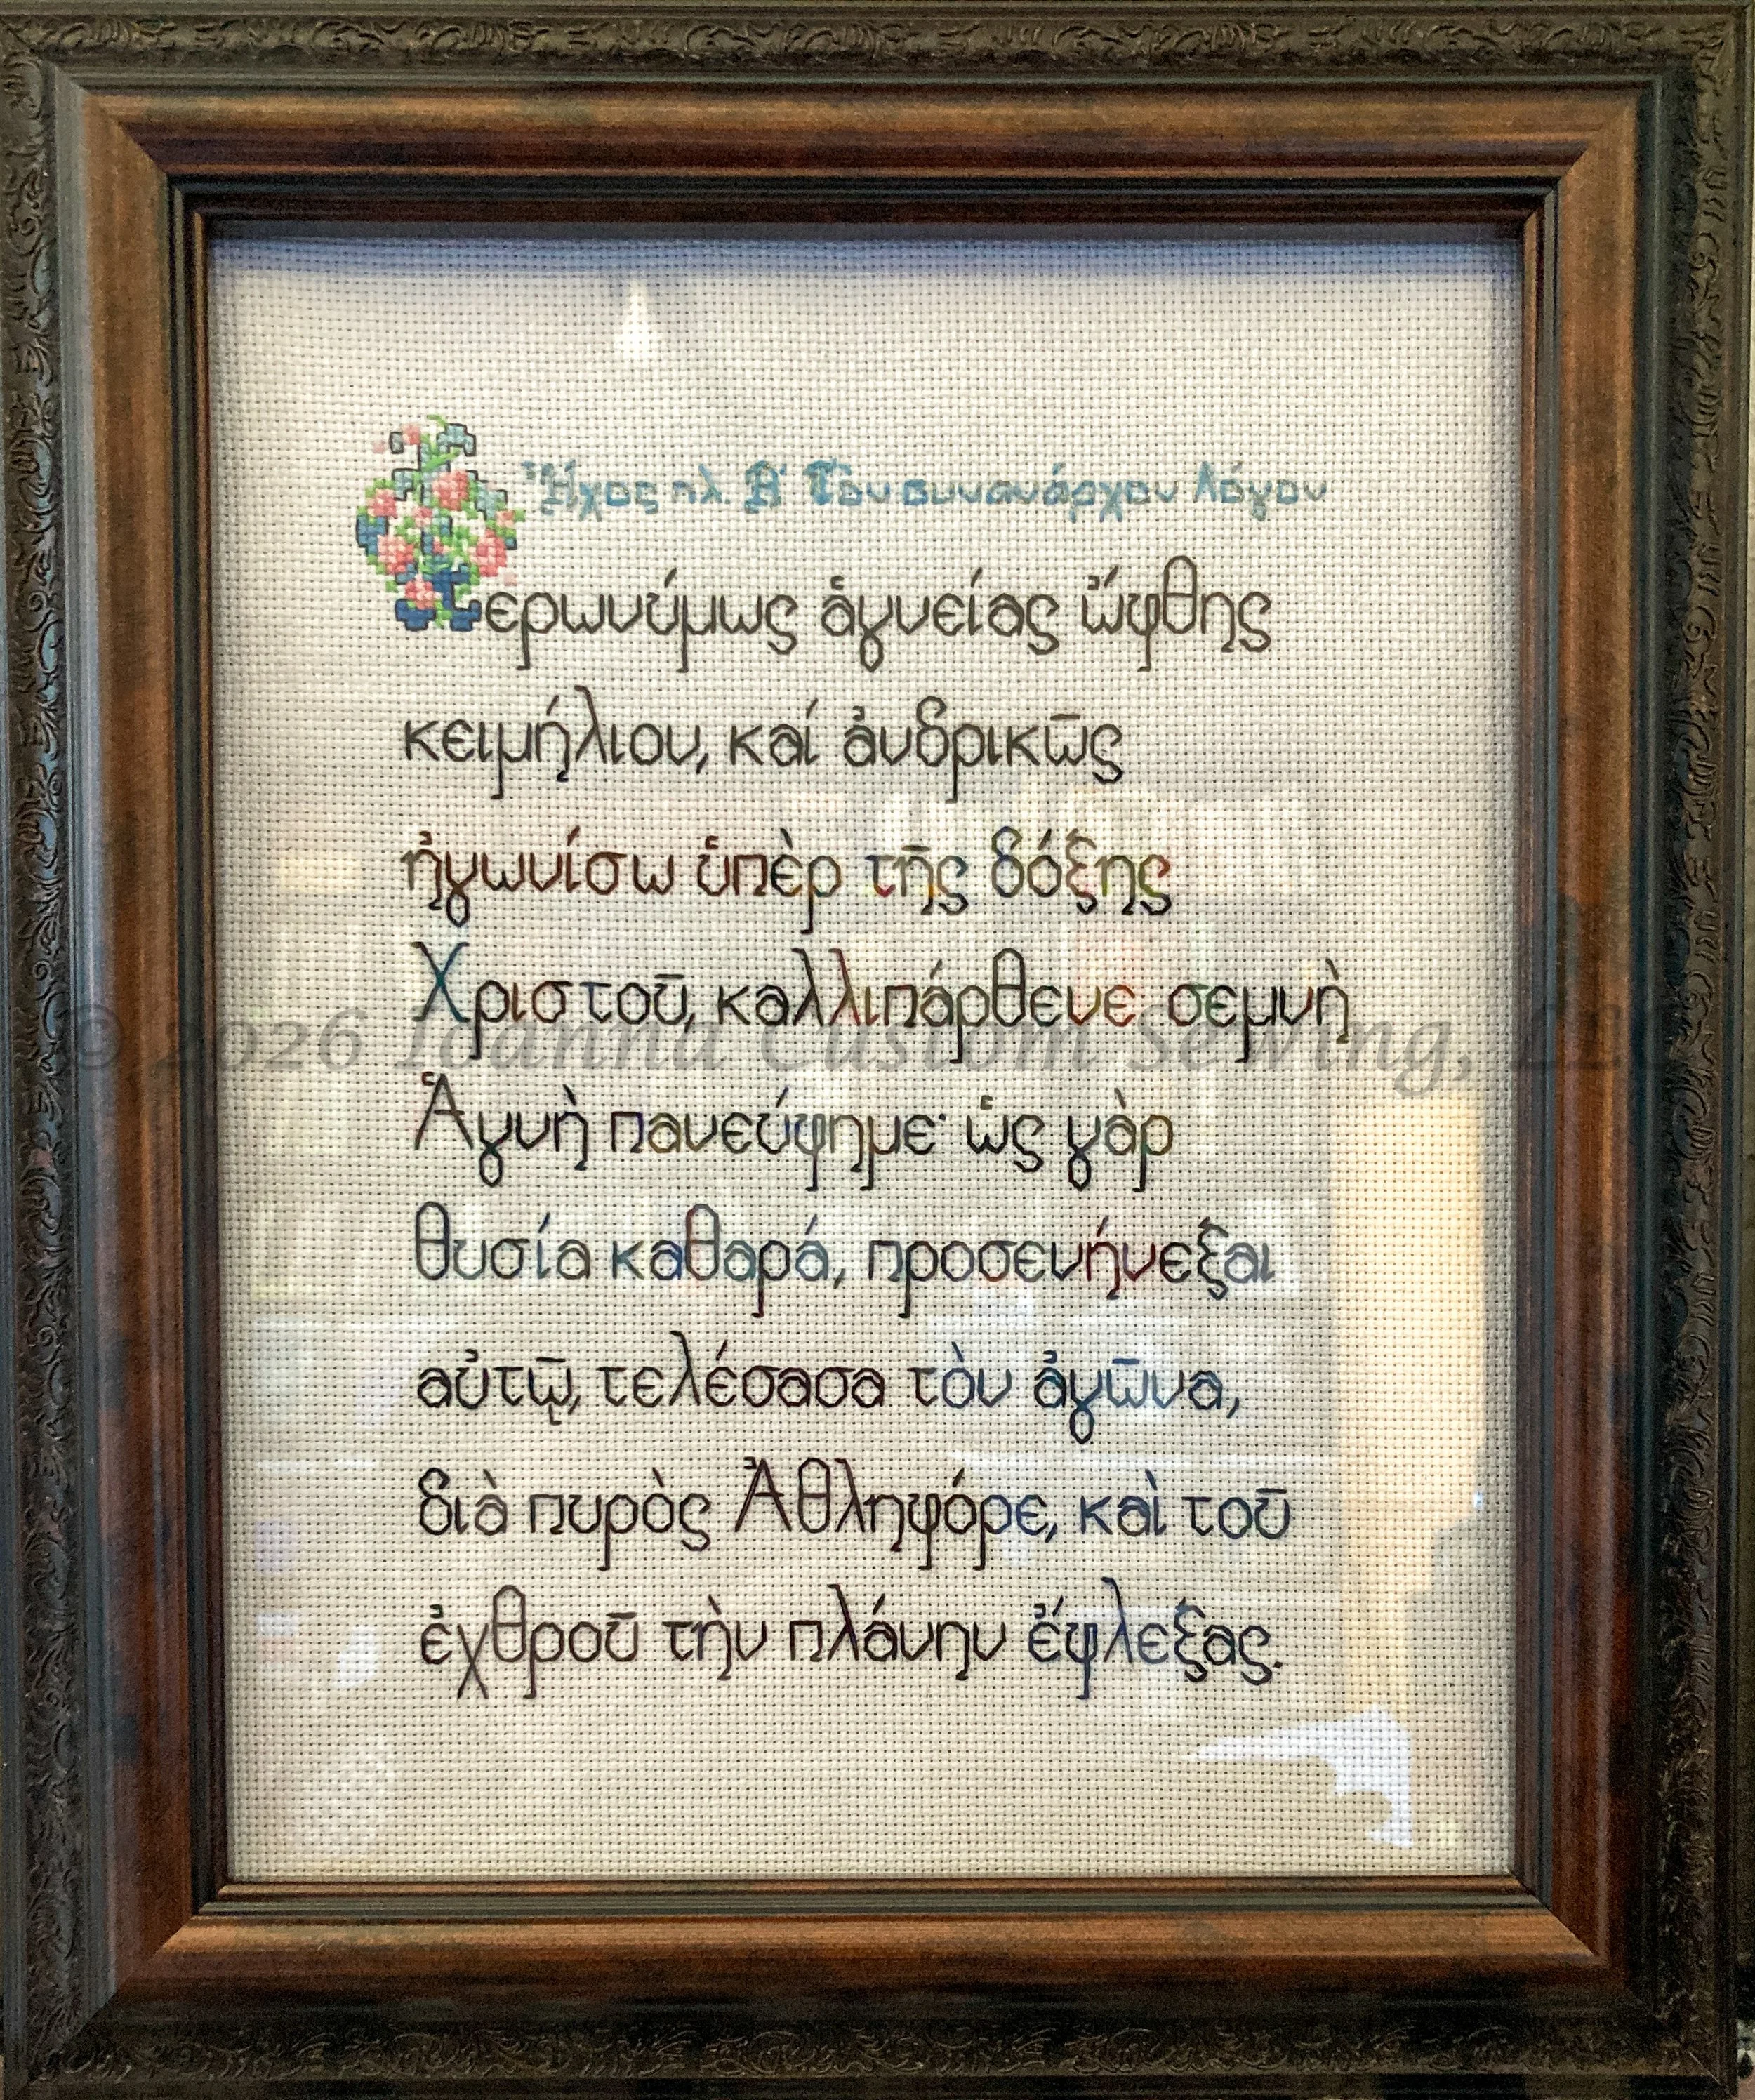 Ἦχος πλ. Β΄ Τὸν συνάναρχον Λόγον
Φερωνύμως ἁγνείας ὤφθης
κειμήλιον, καί ἀνδρικῶς
ἠγωνίσω ὑπὲρ τῆς δόξης
Χριστοῦ, καλλιπάρθενε σεμνὴ
Ἁγνὴ πανεύφημε· ὡς γὰρ
θυσία καθαρά, προσενήνεξαι
αὐτῷ, τελέσασα τὸν ἀγῶνα,
διὰ πυρὸς Ἀθληφόρε, καὶ τοῦ
ἐχθροῦ τὴν πλάνην ἔφλεξας.
© 2026 Ioanna Custom Sewing, LLC